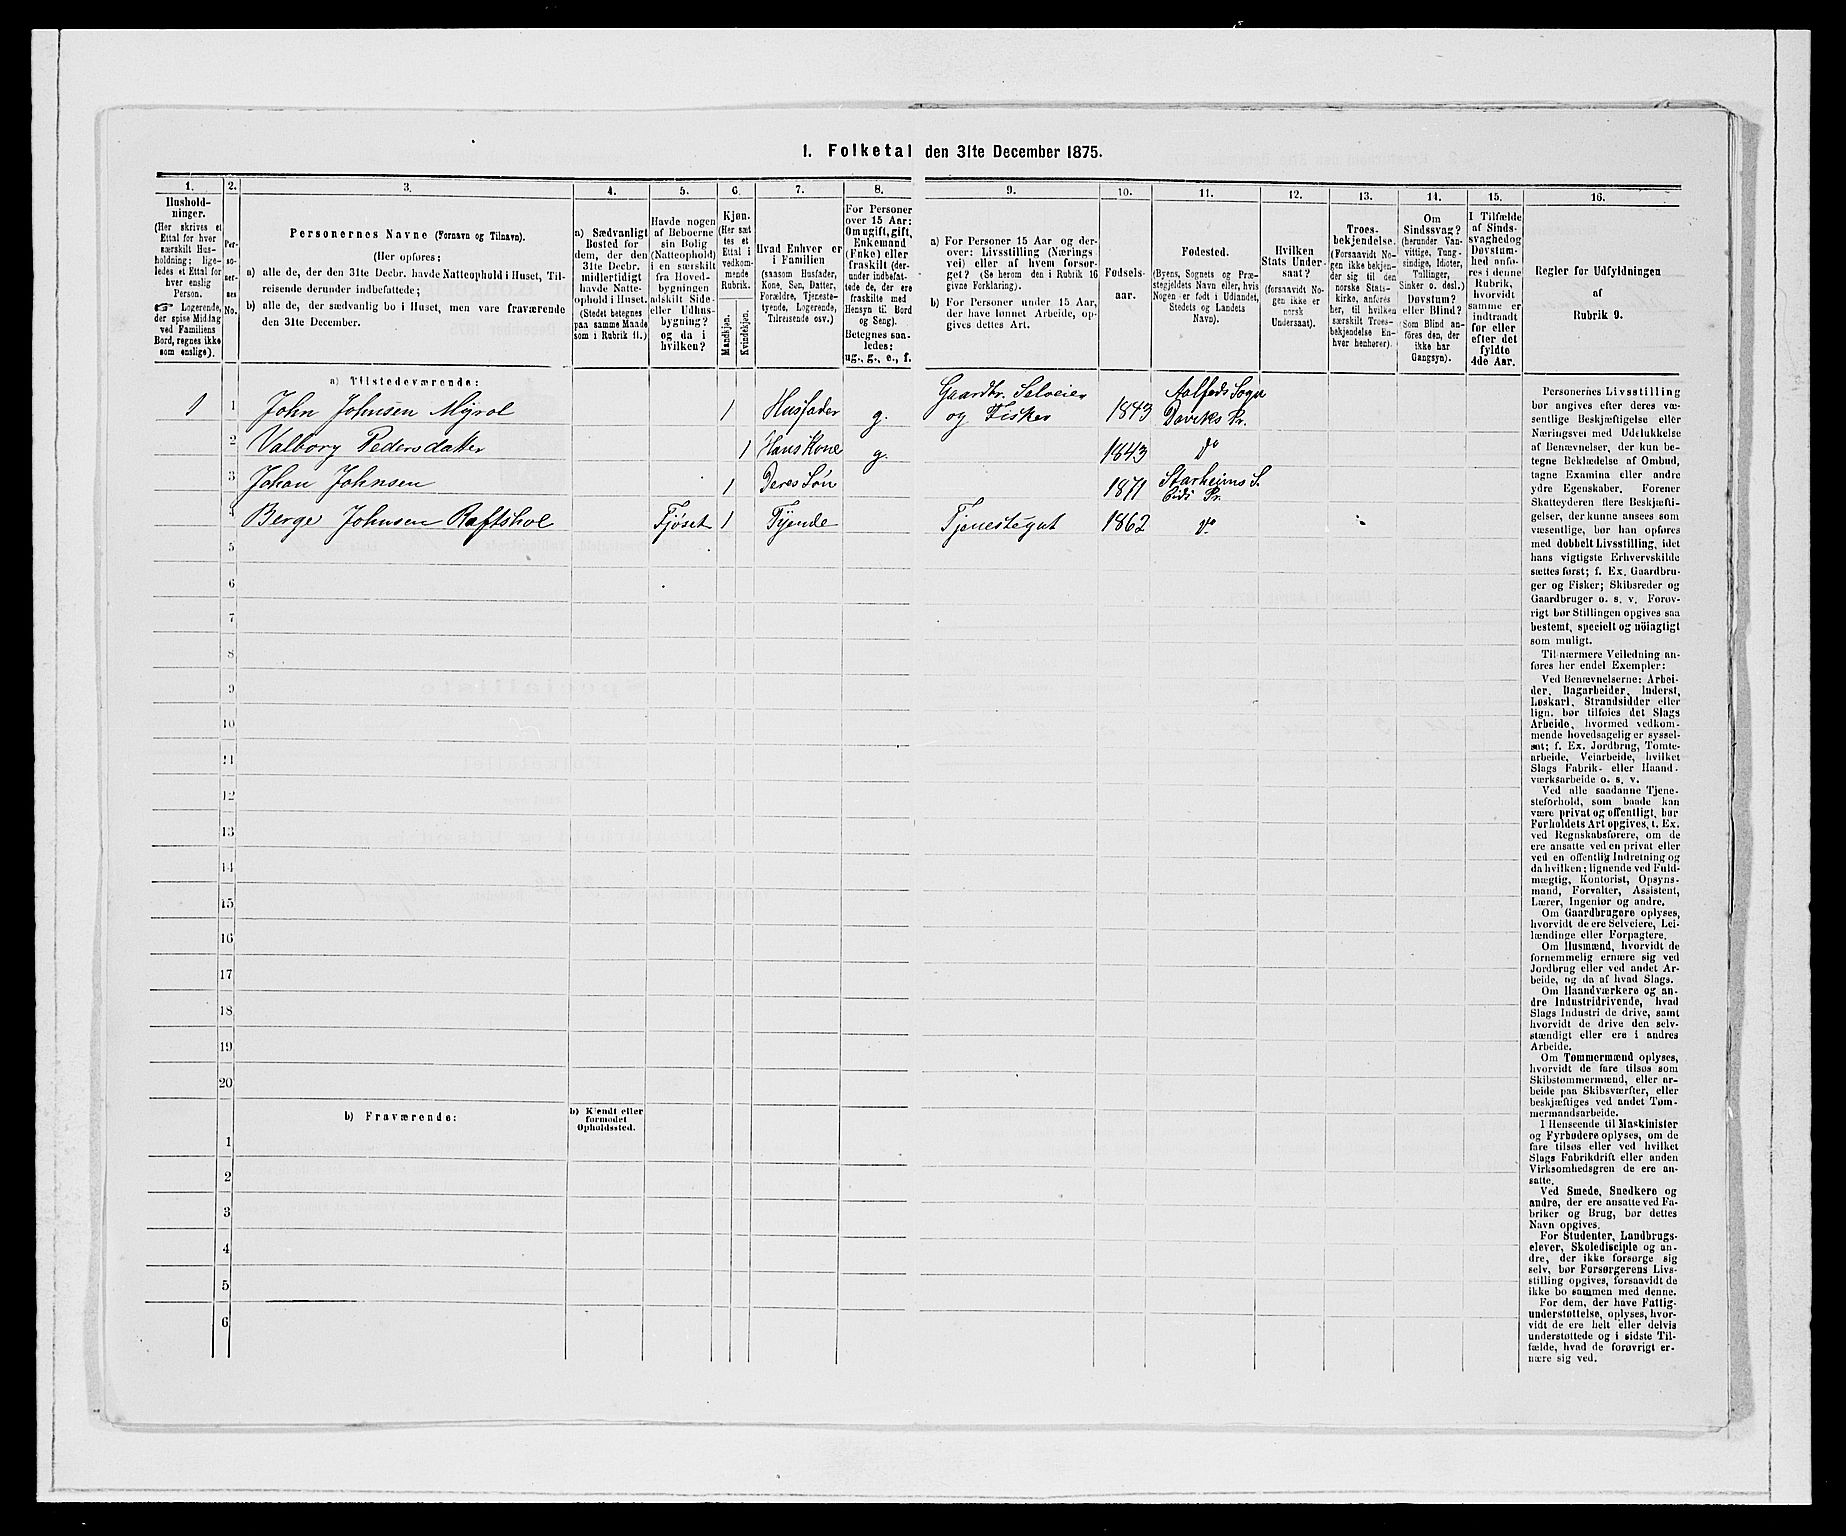 1. Folketal den 31te December 1875.
1.
Hushold-
ninger.
(Her skrives et
Ettal for hver
særskilt Hus-
holdning; lige-
ledes et Ettal for
hver enslig
Person.
Logerende,
der spise Middag
ved Familiens
Bord, regnes ikke
som enslige).
2.
Per-
so-
ner-
nes
No.
3.
Personernes Navne (Fornavn og Tilnavn).
(Her opføres:
a) alle de, der den 31te Decbr. havde Natteophold i Huset, Til-
reisende derunder indbefattede;
b) alle de, der sædvanlig bo i Huset, men vare fraværende
den 31te December.
4.
a) Sædvanligt
Bosted for
dem, der den
31te Decbr.
midlertidigt
havde Natte-
ophold i Huset.
(Stedet betegnes
paa samme Maade
som i Rubrik 11.)
5.
Havde nogen
af Beboerne
sin Bolig
(Natteophold)
i en særskilt
fra Hoved-
bygningen
adskilt Side-
eller Udhus-
bygning?
og da i
hvilken?
6.
Kjøn.
(Her sæt
tes et
Ettal i
vedkom-
mende
Rubrik.
Mandkjøn.
Kvindekjøn.
7.
Hvad Enhver er
i Familien
(saasom Husfader,
Kone, Søn, Datter,
Forældre, Tjeneste-
tyende, Logerende,
Tilreisende osv.)
8.
For Personer
over 15 Aar:
Om ugift, gift,
Enkemand
(Enke) eller
fraskilt (der-
under indbefat-
tede de, der ere
fraskilte med
Hensyn til Bord
og Seng).
Betegnes saa-
ledes:
ug., g., e., f.
9.
a) For Personer 15 Aar og der-
over: Livsstilling (Nærings-
vei) eller af hvem forsør-
get? (Se herom den i Rubrik 16
givne Forklaring).
b) For Personer under 15 Aar,
der have lønnet Arbeide, op-
gives dettes Art.
10.
Fødsels-
aar.
11.
Fødested.
(Byens, Sognets og Præ-
stegjeldets Navn eller, hvis
Nogen er født i Udlandet,
Stedets og Landets
Navn).
12.
Hvilken
Stats Under-
saat?
(forsaavidt No-
gen ikke er
norsk
Undersaat).
13.
Troes-
bekjendelse.
(Forsaavidt No-
gen ikke bekjen-
der sig til den
norske Stats-
kirke, anføres
her, til hvilken
særskilt Troes-
bekjendelse En-
hver henhører).
14.
Om
Sindssvag?
(herunder Van-
vittige, Tung-
sindige, Idioter,
Tullinger,
Sinker o. desl.)
Døvstum?
eller Blind?
(Som Blind an-
føres den, der
ikke har
Gangsyn).
15.
I Tilfælde
af Sinds-
svaghed og
Døvstum-
hed anfø-
res i denne
Rubrik,
hvorvidt
samme er
indtraadt
før eller
efter det
fyldte
4de Aar.
16.
Regler for Udfyldningen
af
Rubrik 9.
a) Tilstedeværende:
1 1 John Johnsen Myrol 1 Husfader g. Gaardbr. Selveier og Fisker 1843 Aalfods Sogn Daviks Pr.
2 Valborg Pedersdatter 1 Hans Kone g. 1843 do
3 Johan Johnsen 1 Deres Søn 1871 Starheims S. Eids Pr.
4 Berge Johnsen Raftshol Fjøset 1 Tyende Tjenestegut 1862 do
5
6
7
8
9
10
11
12
13
14
15
16
17
18
19
20
b) Fraværende:
b) Kjendt eller
formodet
Opholdssted.
1
2
3
4
5
6
Personernes Livsstilling
bør angives efter deres væ-
sentlige Beskjæftigelse eller
Næringsvei med Udelukkelse
af Benævnelser, der kun be-
tegne Beklædelse af Ombud,
tagne Examina eller andre
ydre Egenskaber. Forener
Skatteyderen flere Beskjæfti-
gelser, der kunne ansees som
væsentlige, bør han opføres
med dobbelt Livsstilling, idet
hans vigtigste Erhvervskilde
sættes først; f. Ex. Gaardbru-
ger og Fisker; Skibsreder og
Gaardbruger o. s. v. Forøv-
rigt bør Stillingen opgives saa
bestemt, specielt og nöiagtigt
som muligt.
Til nærmere Veiledning an-
føres her endel Exempler:
Ved Benævnelserne: Arbei-
der, Dagarbeider, Inderst,
Løskarl, Strandsidder eller
lign. bør tilføies det Slags
Arbeide, hvormed vedkom-
mende hovedsagelig er syssel-
sat; f. Ex. Jordbrug, Tomte-
arbeide, Veiarbeide, hvilket
Slags Fabrik- eller Haand-
værksarbeide o. s. v.
Ved alle saadanne Tjene-
steforhold, som baade kan
være privat og offentligt, bør
Forholdets Art opgives, t. Ex.
ved Regnskabsførere, om de
ere ansatte ved en privat eller
ved en offentlig Indretning og
da hvilken; lignende ved Fuld-
mægtig, Kontorist, Opsyns-
mand, Forvalter, Assistent,
Lærer, Ingeniør og andre.
Om Gaardbrugere oplyses,
hvorvidt de ere Selveiere, Lei-
lændinge eller Forpagtere.
Om Husmænd, hvorvidt de
fornemmelig ernære sig ved
Jordbrug eller ved andet Ar-
beide, og da af hvad Slags.
Om Haandværkere og an-
dre Industridrivende, hvad
Slags Industri de drive, samt
hvorvidt de drive den selv-
stændigt eller ere i andres
Arbeide.
Om Tømmermænd oplyses,
hvorvidt de fare tilsøs som
Skibstømmermænd, eller ar-
beide paa Skibsværfter, eller
beskjæftiges ved andet Tøm-
mermandsarbeide.
I Henseende til Maskinister
og Fyrbødere oplyses, om de
fare tilsøs eller ved hvilket
Slags Fabrikdrift eller anden
Virksomhedsgren de ere an-
satte.
Ved Smede, Snedkere og
andre, der ere ansatte ved Fa-
briker og Brug, bør dettes
Navn opgives.
For Studenter, Landbrugs-
elever, Skoledisciple og an-
dre, der ikke forsørge sig
selv, bør Forsørgerens Livs-
stilling opgives, forsaavidt de
ikke bo sammen med denne.
For dem, der have Fattig-
understøttelse, oplyses, hvor-
vidt de ere helt eller delvis
understøttede og i sidste Til-
fælde, hvad de forøvrigt er-
nære sig ved.